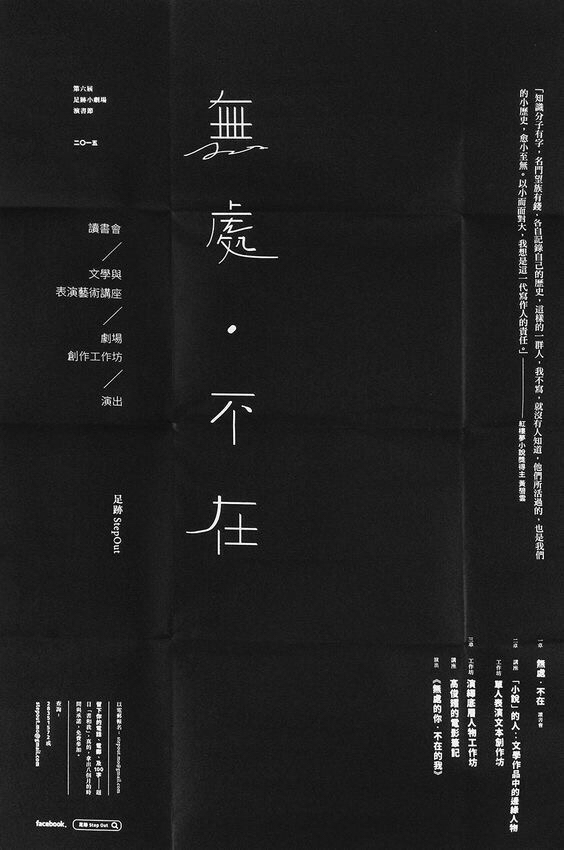 第六屆
足跡小劇場
演書節
二〇一五
無處・不在
讀書會
文學與
表演藝術講座
劇場
創作工作坊
演出
足跡 StepOut
「知識分子有字，名門望族有錢，各自記錄自己的歷史，這樣的一群人，我不寫，就沒有人知道，他們所活過的，也是我們
的小歷史，愈小至無。以小而面對大，我想是這一代寫作人的責任。」——紅樓夢小說獎得主 黃碧雲
一章
無處・不在 讀書會
二章
講座
「小說」的人：文學作品中的邊緣人物
工作坊
單人表演文本創作坊
三章
工作坊
演繹底層人物工作坊
講座
高俊耀的電影筆記
演出
《無處的你・不在的我》
以電郵報名－stepout.mo@gmail.com
留下你的電話、電郵、及100字——題
目「書和我」，真的，拿出八個月的時
間與承諾，免費參加。
查詢－
28351572 或
stepout.mo@gmail.com
facebook.
足跡 Step Out